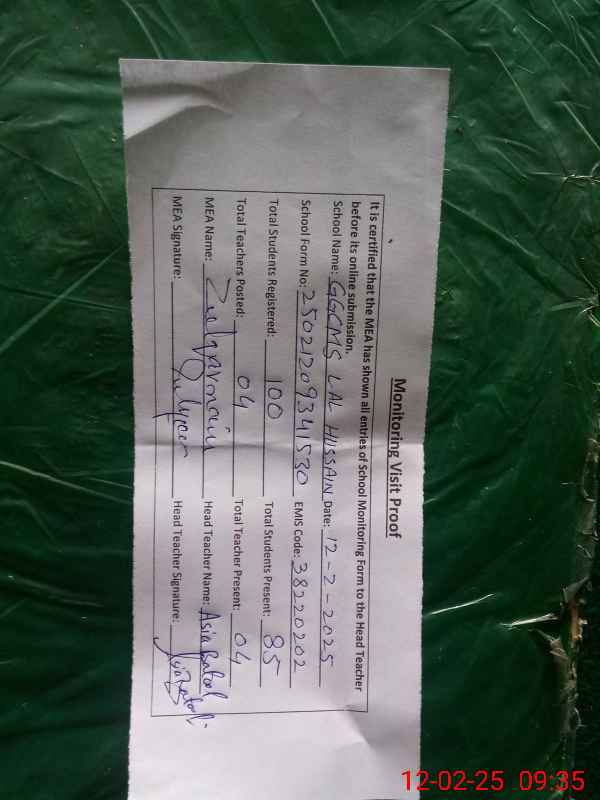 Monitoring Visit Proof
It is certified that the MEA has shown all entries of School Monitoring Form to the Head Teacher
before its online submission.
School Name: GGCMS LAL HUSSAIN Date: 12-2-2025
School Form No: 25021209341530 EMIS Code: 38220202
Total Students Registered: 100 Total Students Present: 85
Total Teachers Posted: 04 Total Teacher Present: 04
MEA Name: Zulqarnain Head Teacher Name: Asia Batool
MEA Signature: Head Teacher Signature:
12-02-25 09:35